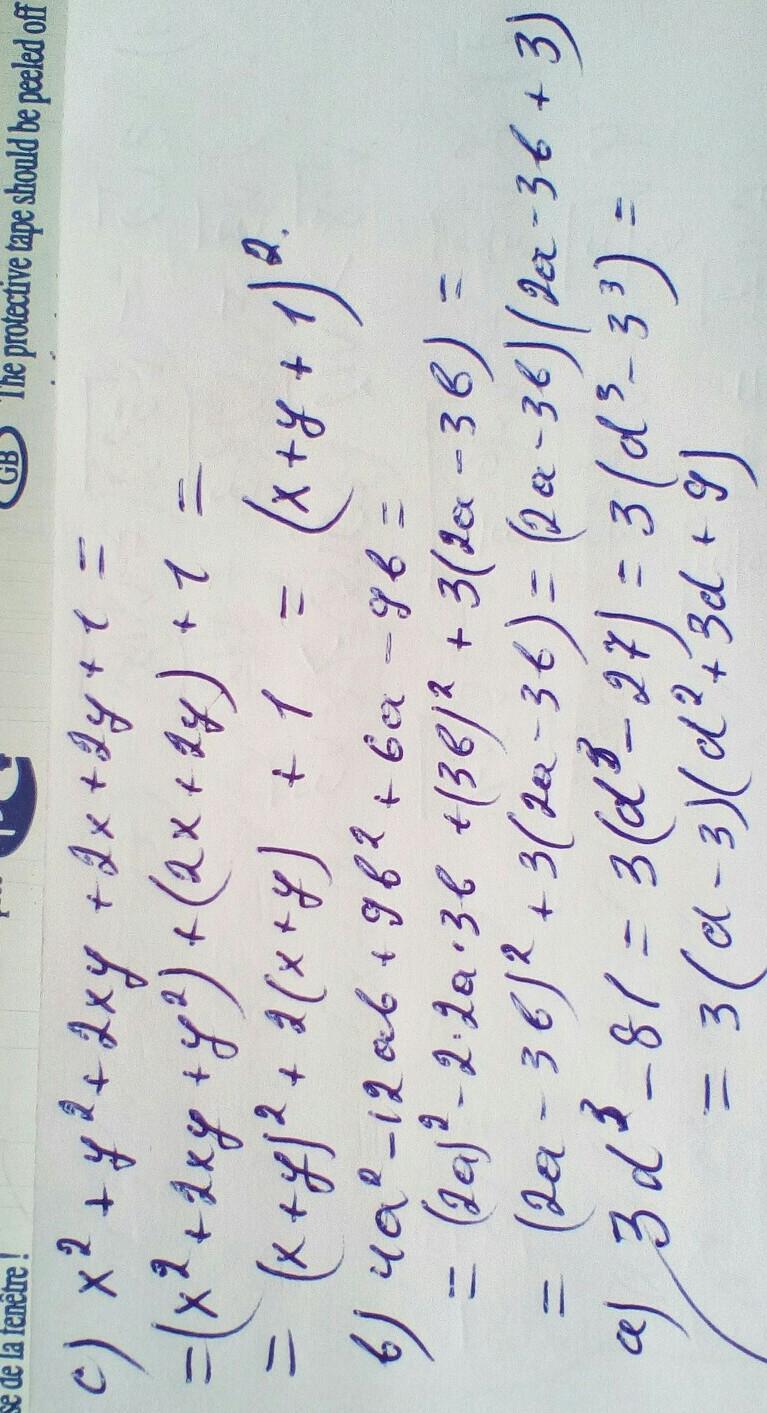 se de la fenêtre !
GB The protective tape should be peeled off
c) x² + y² + 2xy + 2x + 2y + 1 =
= (x² + 2xy + y²) + (2x + 2y) + 1 =
= (x + y)² + 2(x + y) + 1 = (x + y + 1)².
b) 4a² - 12ab + 9b² + 6a - 9b =
= (2a)² - 2·2a·3b + (3b)² + 3(2a - 3b) =
= (2a - 3b)² + 3(2a - 3b) = (2a - 3b)(2a - 3b + 3)
a) 3d³ - 81 = 3(d³ - 27) = 3(d³ - 3³) =
= 3(d - 3)(d² + 3d + 9)